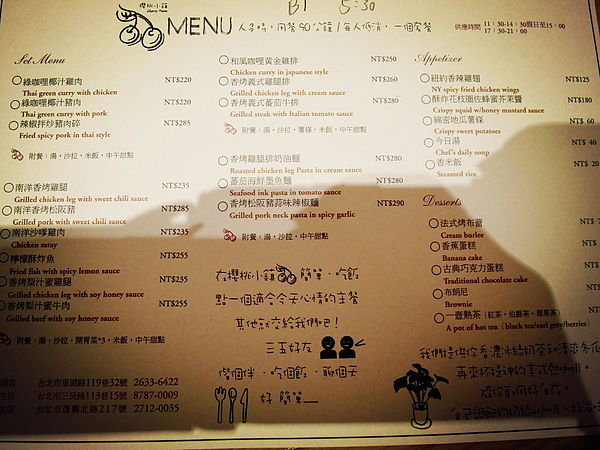 櫻桃小鎮
Cherry Town
MENU
人多時，用餐90分鐘/每人低消，一個套餐
B1 5:30
供應時間 11：30-14：30假日至15：00
17：30-21：00
Set Menu
綠咖哩椰汁雞肉 NT$220
Thai green curry with chicken
綠咖哩椰汁豬肉 NT$220
Thai green curry with pork
辣椒拌炒豬肉碎 NT$285
Fried spicy pork in thai style
附餐：湯，沙拉，米飯，中午甜點
南洋香烤雞腿 NT$235
Grilled chicken leg with sweet chili sauce
南洋香烤松阪豬 NT$285
Grilled pork with sweet chili sauce
南洋沙嗲雞肉 NT$235
Chicken satay
檸檬酥炸魚 NT$255
Fried fish with spicy lemon sauce
香烤梨汁蜜雞腿 NT$235
Grilled chicken leg with soy honey sauce
香烤梨汁蜜牛肉 NT$255
Grilled beef with soy honey sauce
附餐：湯，沙拉，開胃菜*3，米飯，中午甜點
台北市東湖路119巷32號 2633-6422
台北市三民路113巷15號 8787-0009
台北市復興北路217號 2712-0035
和風咖哩黃金雞排 NT$250
Chicken curry in japanese style
香烤義式雞腿排 NT$260
Grilled chicken leg with cream sauce
香烤義式蕃茄牛排 NT$280
Grilled steak with Italian tomato sauce
附餐：湯，沙拉，薯條，米飯，中午甜點
香烤雞腿排奶油麵 NT$280
Roasted chicken leg Pasta in cream sauce
蕃茄海鮮墨魚麵 NT$280
Seafood ink pasta in tomato sauce
香烤松阪豬蒜味辣椒麵 NT$290
Grilled pork neck pasta in spicy garlic
附餐：湯，沙拉，中午甜點
在櫻桃小鎮 簡單‧吃飯
點一個適合今天心情的主餐
其他就交給我們吧！
三五好友
偕個伴‧吃個飯‧聊個天
好 簡單
Appetizer
紐約香辣雞翅 NT$125
NY spicy fried chicken wings
酥炸花枝圈佐蜂蜜芥茉醬 NT$180
Crispy squid w/honey mustard sauce
綿密地瓜薯條 NT$
Crispy sweet potatoes
今日湯 NT$ 40
Chef's daily soup
香米飯 NT$ 20
Steamed rice
Desserts
法式烤布蕾 NT$
Cream burlee
香蕉蛋糕 NT$
Banana cake
古典巧克力蛋糕 NT$
Traditional chocolate cake
布朗尼 NT$
Brownie
一壺熱茶（紅茶，伯爵茶，莓果茶） NT$
A pot of hot tea（black tea/earl grey/berries）